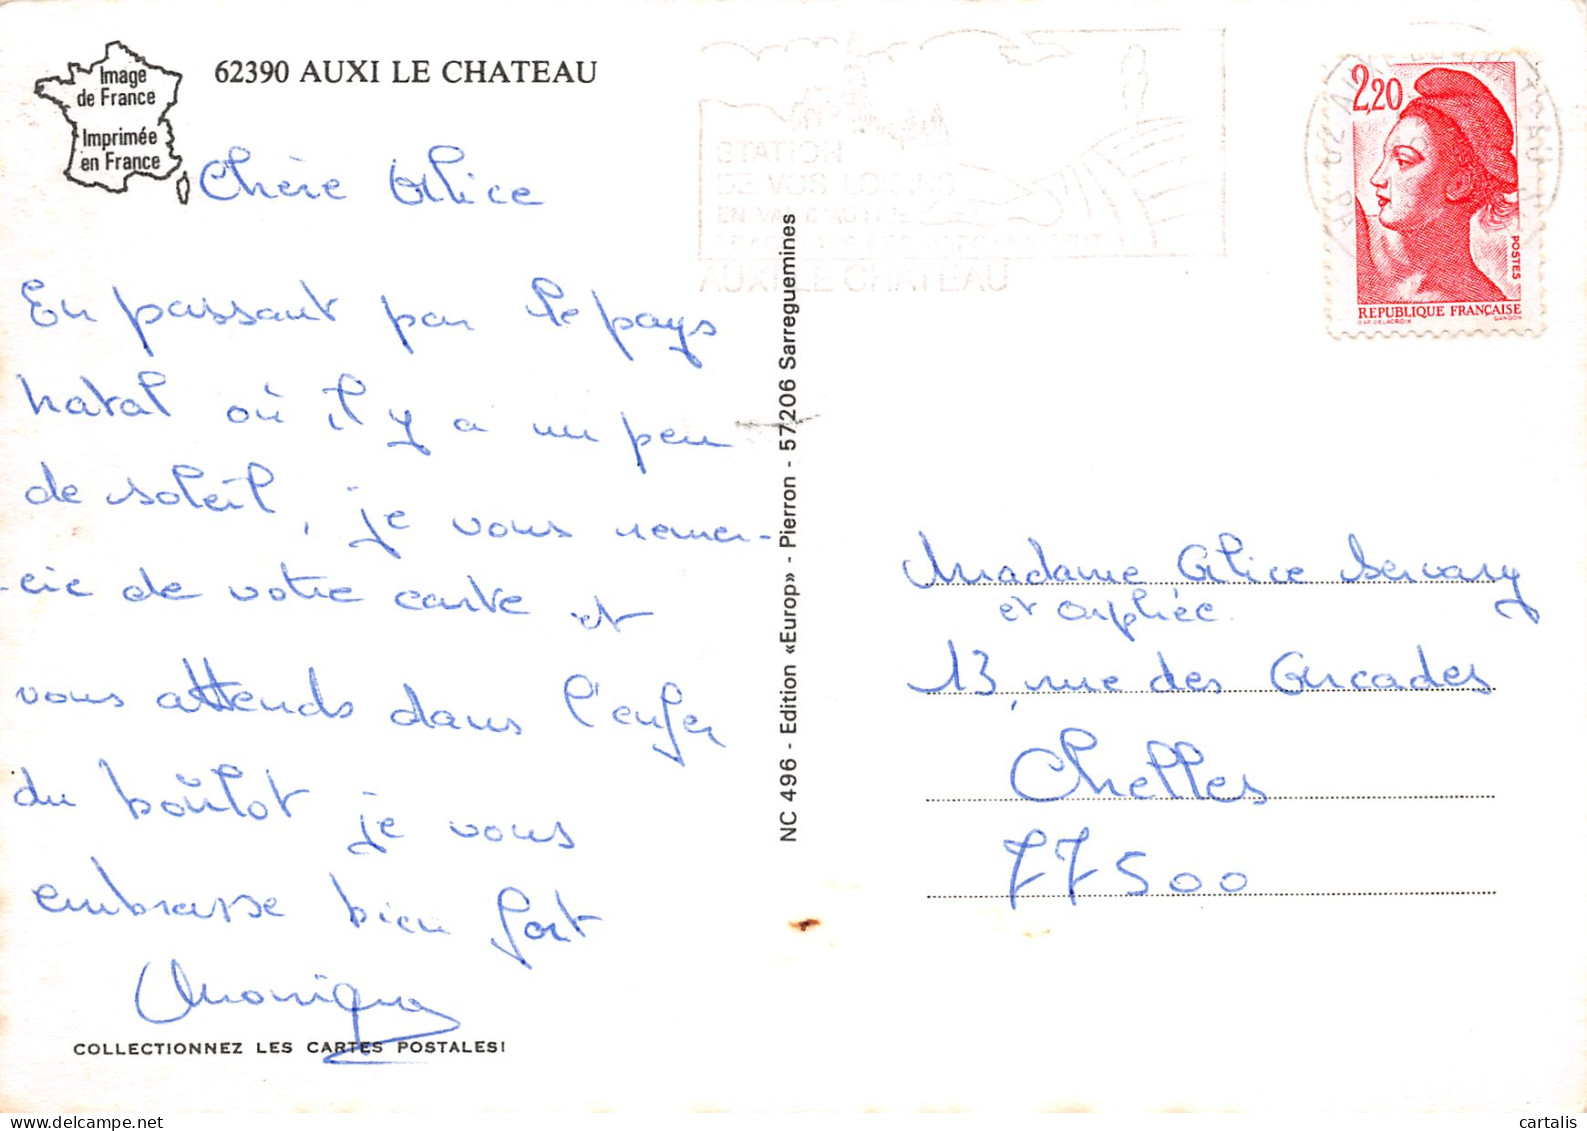 Image
de France
Imprimée
en France
62390 AUXI LE CHATEAU
Chère Alice
En passant par le pays
natal où il y a un peu
de soleil, je vous remer-
-cie de votre carte et
vous attends dans l'enfer
du boulot je vous
embrasse bien fort
Monique
COLLECTIONNEZ LES CARTES POSTALES!
NC 496 - Edition «Europ» - Pierron - 57206 Sarreguemines
STATION
DE VOS LOISIRS
EN VAL D'AUTHIE
AUXI LE CHATEAU
2,20
POSTES
REPUBLIQUE FRANÇAISE
D'AP. DELACROIX GANDON
Madame Alice Servary
et Orphée
13, rue des Arcades
Chelles
77500
cartalis